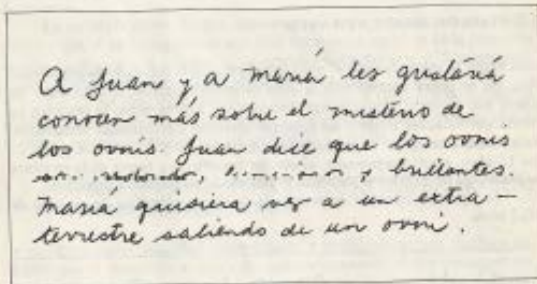 A Juan y a María les gustaría
conocer más sobre el misterio de
los ovnis. Juan dice que los ovnis
son y brillantes.
María quisiera ver a un extra-
terrestre saliendo de un ovni.